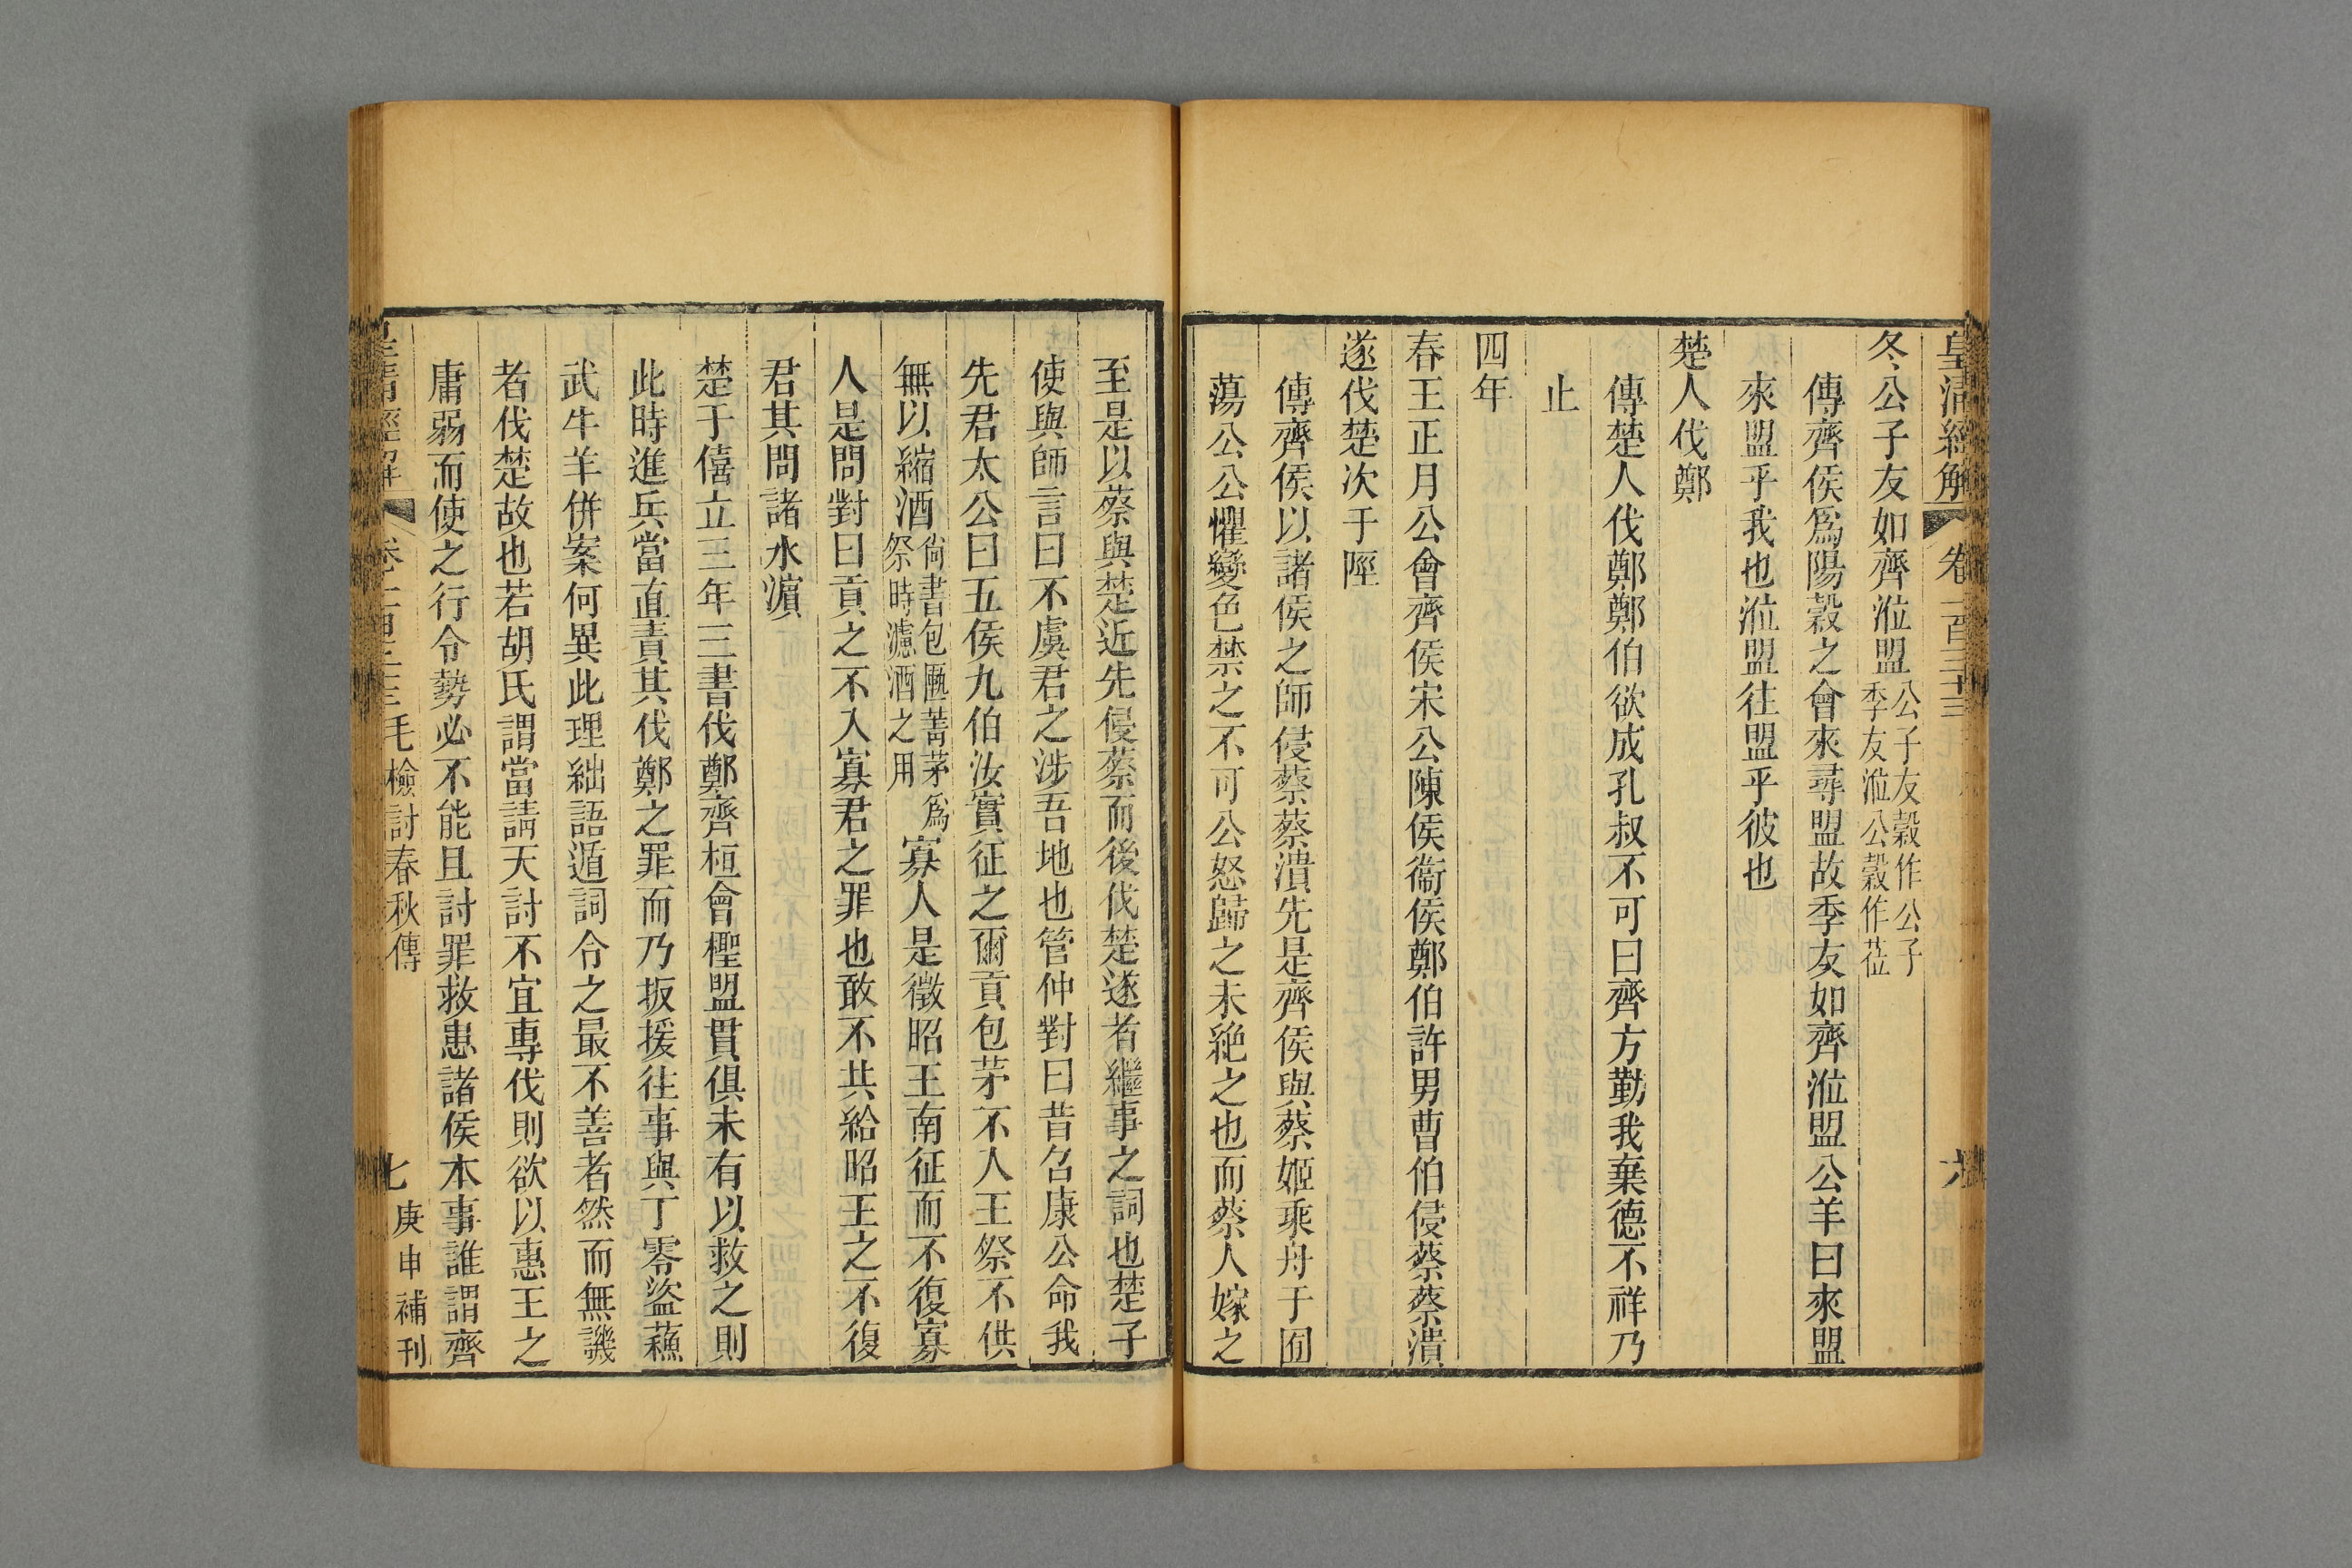 皇清經解 卷一百二十三 六
冬公子友如齊涖盟公子友穀作公子季友涖公穀作莅
傳齊侯爲陽穀之會來尋盟故季友如齊涖盟公羊曰來盟
來盟乎我也涖盟往盟乎彼也
楚人伐鄭
傳楚人伐鄭鄭伯欲成孔叔不可曰齊方勤我棄德不祥乃
止
四年
春王正月公會齊侯宋公陳侯衞侯鄭伯許男曹伯侵蔡蔡潰
遂伐楚次于陘
傳齊侯以諸侯之師侵蔡蔡潰先是齊侯與蔡姬乘舟于囿
蕩公公懼變色禁之不可公怒歸之未絶之也而蔡人嫁之
至是以蔡與楚近先侵蔡而後伐楚遂者繼事之詞也楚子
使與師言曰不虞君之涉吾地也管仲對曰昔召康公命我
先君太公曰五侯九伯汝實征之爾貢包茅不入王祭不供
無以縮酒尙書包匭菁茅爲祭時濾酒之用寡人是徵昭王南征而不復寡
人是問對曰貢之不入寡君之罪也敢不共給昭王之不復
君其問諸水濵
楚于僖立三年三書伐鄭齊桓會檉盟貫俱未有以救之則
此時進兵當直責其伐鄭之罪而乃扳援往事與丁零盜蘇
武牛羊併案何異此理絀語遁詞令之最不善者然而無譏
者伐楚故也若胡氏謂當請天討不宜專伐則欲以惠王之
庸弱而使之行令勢必不能且討罪救患諸侯本事誰謂齊
皇清經解 卷一百二十三毛檢討春秋傳 七 庚申補刊